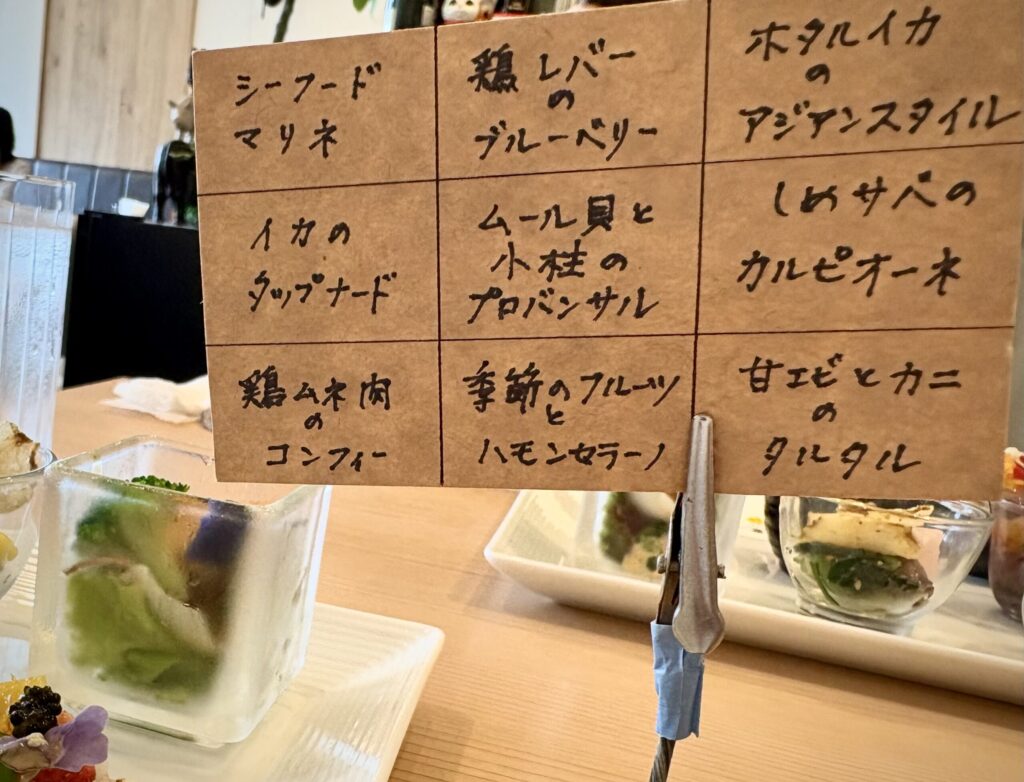 シーフード
マリネ
鶏レバー
の
ブルーベリー
ホタルイカ
の
アジアンスタイル
イカの
タップナード
ムール貝と
小柱の
プロバンサル
しめサバの
カルピオーネ
鶏ムネ肉
の
コンフィー
季節のフルーツ
と
ハモンセラーノ
甘エビとカニ
の
タルタル